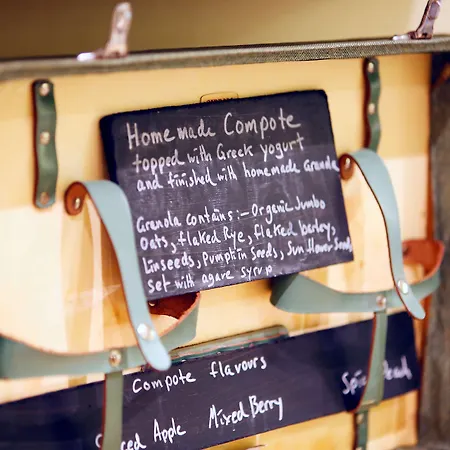 Homemade Compote
topped with Greek yogurt
and finished with homemade Granola
Granola contains:- Organic Jumbo
Oats, flaked Rye, flaked barley,
linseeds, Pumpkin Seeds, Sunflower Seeds
Set with agave syrup.
Compote flavours
Apple Mixed Berry